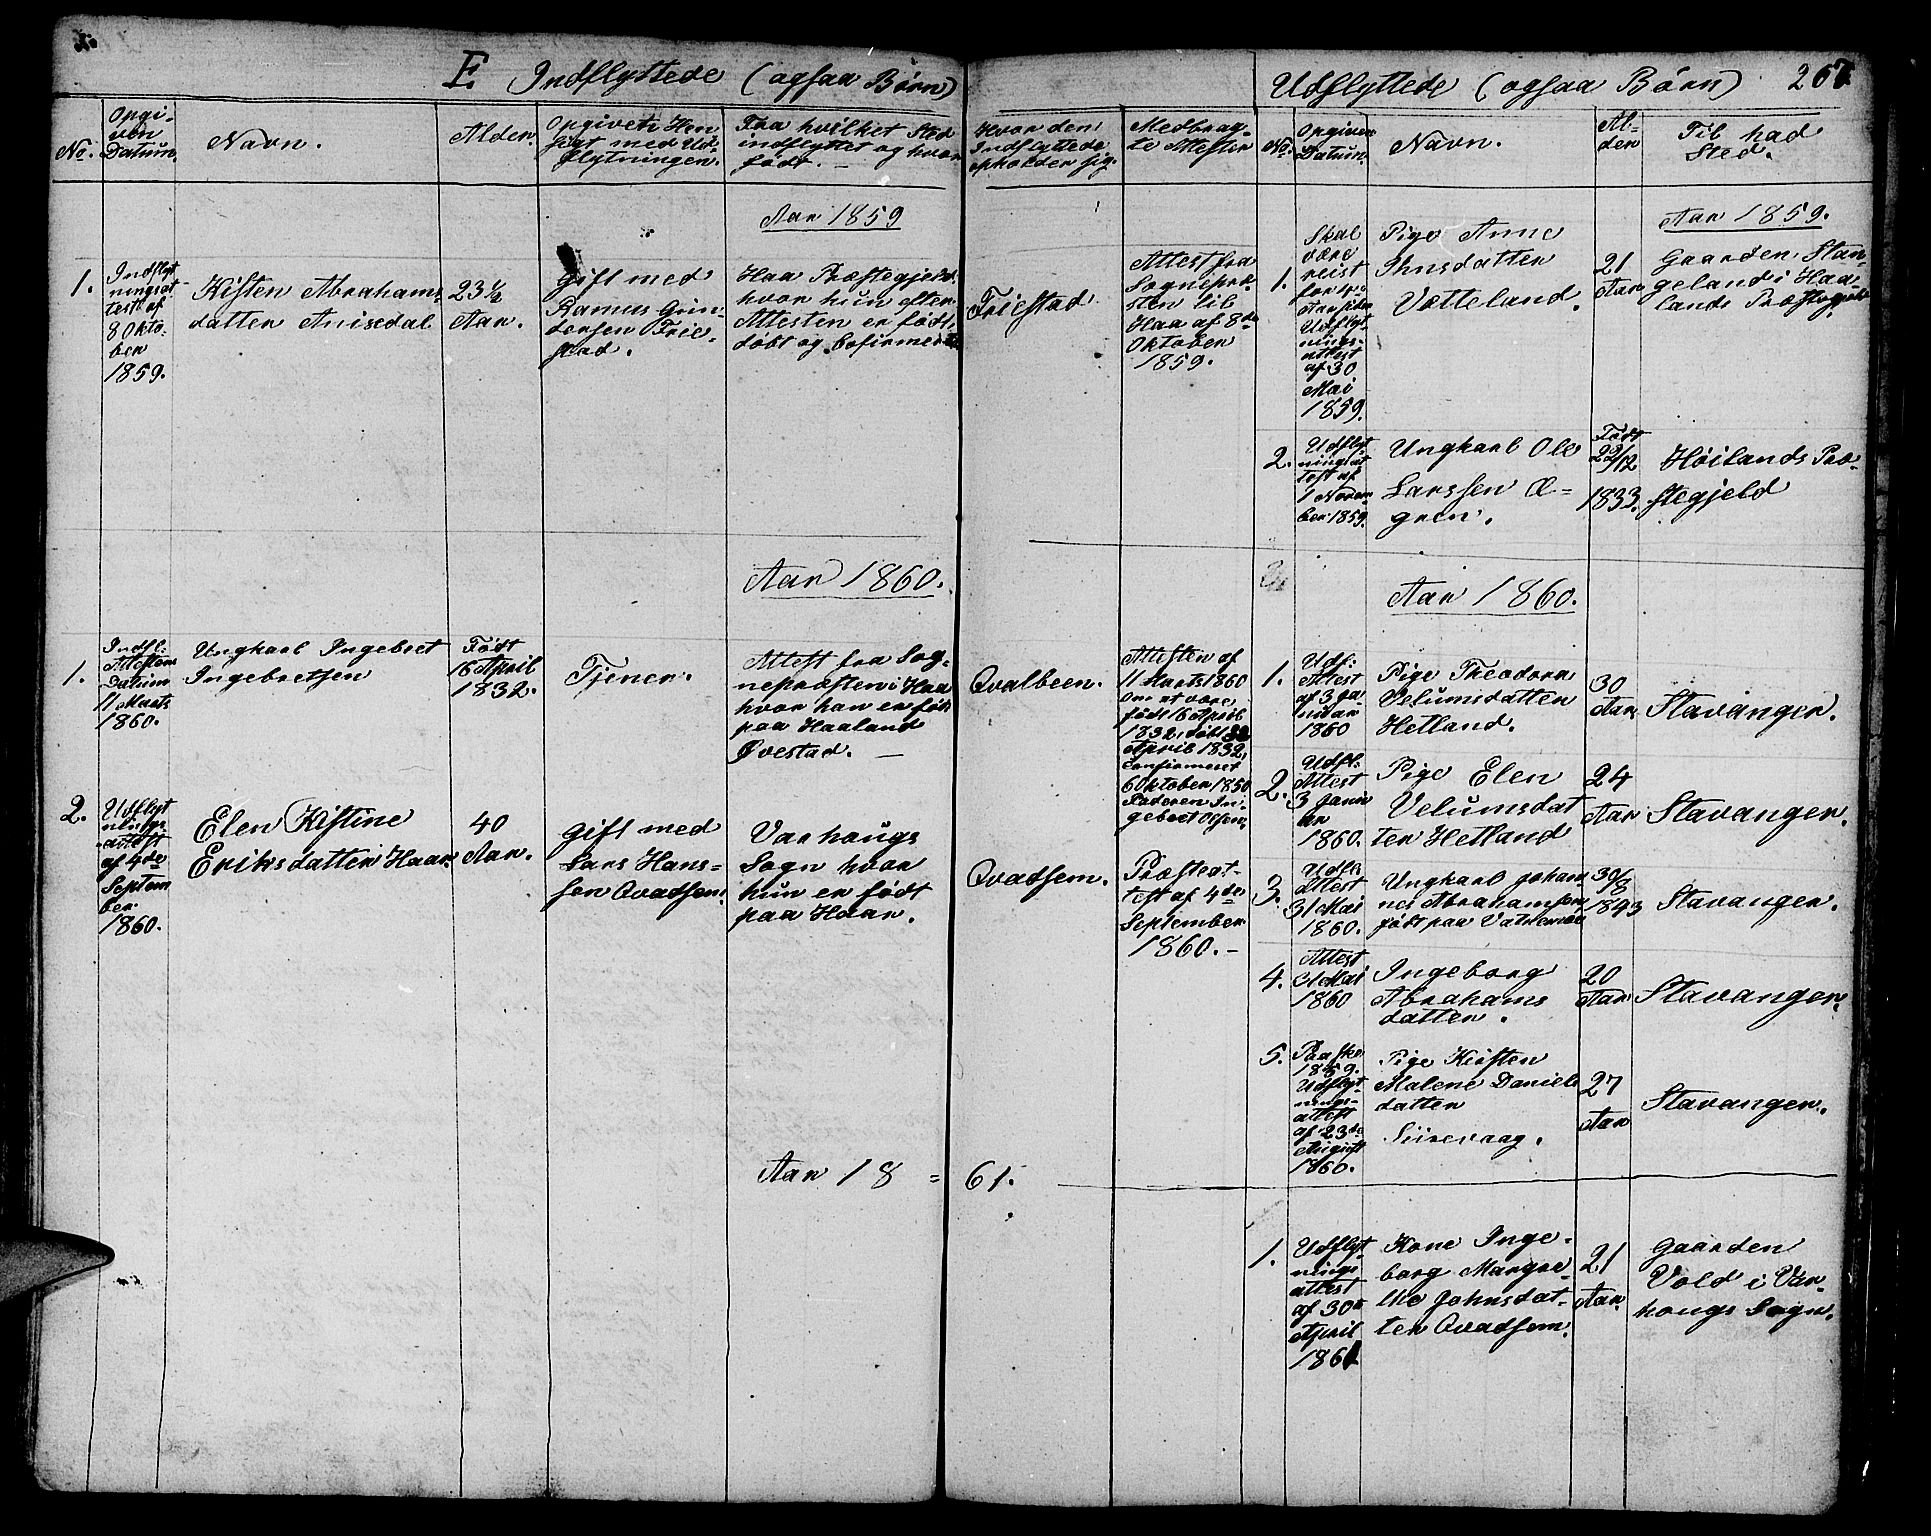 E. Indflyttede (ogsaa Børn)
No.
Opgi-
ven
Datum.
Navn.
Alder.
Opgivet Hen
sigt med Ud-
flytningen.
Fra hvilket Sted
indflyttet og hvor
født. –
Hvor den
Indflyttede
opholder sig.
Medbrag-
te Attester
Aar 1859
1.
Indflyt
ningsat
test af
8 Okto-
ber
1859.
Kisten Abrahams-
datter Anisdal
23 ½
Aar.
Gift med
Ramus Grin-
dersen Frie-
stad.
Haa Præstegjeld
hvor hun efter
Attesten er født,
døbt og
Friestad
Attest fra
Sognepræ-
sten til
Haa af 8de
Oktober
1859.
Aar 1860.
1.
Indfl.
Attestens
Datum
11 Marts
1860.
Ungkarl Ingebret
Ingebretsen
Født
16 April
1832.
Tjener.
Attest fra Sog-
nepræsten i Haa
hvor han er født
paa Haaland
Øvestad. –
Qvalbeen.
Attesten af
11 Marts 1860
om at være
født 16 April
1832, døbt
April 1832,
Confirmeret
6 Oktober 1850
Faderen In-
gebret Olsen.
2.
Udflyt
nings
attest
af 4de
Septem
ber
1860.
Elen Kistine
Eriksdatter Haar
40
Aar.
Gift med
Lars Hans-
sen Qvadsem.
Varhaugs
Sogn hvor
hun er født
paa Haar.
Qvadsem.
Præsteat-
test af 4de
September
1860. –
Aar 18 = 61.
Udflyttede (ogsaa Børn) 267
No.
Opgiven
Datum.
Navn.
Al-
der
Til hvad
Sted.
Aar 1859.
1.
Skal
være
reist
for
Udflyt
nings-
attest
af 30
Mai
1859.
Pige Anne
Ihnsdatter
Vetteland.
21
Aar
Gaarden Stan-
geland i Haa-
lands Præstegjeld
2.
Udflyt
ningsat
test af
1 Novem
ber 1859.
Ungkarl Ole
Larssen Æ-
gren.
Født
22/12
1833.
Høilands Præ-
stegjeld
Aar 1860.
1.
Udf:
Attest
af 3 Ja-
nuar
1860
Pige Theodora
Velumsdatter
Hetland.
30
Aar
Stavanger.
2.
Udfl:
Attest
3 Janu
ar
1860.
Pige Elen
Velumsdat
ter Hetland
24
Aar
Stavanger.
3.
Udfl
Attest
31 Mai
1860.
Ungkarl Johan-
nes Abrahamsen
født paa
30/8
1843
Stavanger.
4.
Attest
31 Mai
1860
Ingeborg
Abrahams
datter.
20
Aar
Stavanger.
5.
Paaske
1859.
Udflyt
nings-
attest
af 23de
August
1860.
Pige Kisten
Malene Daniels
datter
Sirevaag.
27
Aar
Stavanger.
1.
Udflyt-
nings
attest
af 30te
April
1861
Kone Inge-
borg Margre-
the Johnsdat-
ter Qvadsem.
21
Aar
Gaarden
Vold i Var-
haugs Sogn.